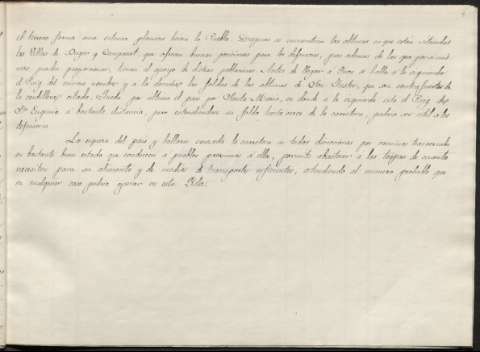 el terreno forma una extensa planicie hasta la Pobla. Despues se encuentran las alturas en que estan situadas
las Villas de Buger y Campanet, que ofrecen buenas posiciones para la defensiva, pues ademas de las que por si
una puede proporcionar, tienen el apoyo de dichas poblaciones. Antes de llegar a se halla a la izquierda
el Puig del mismo nombre y a la derecha las faldas de las alturas de San que son contrafuertes de
la cordillera citada. Puede por ultimo el paso por Santa Maria, en donde a la izquierda esta el Puig de
Sta. Eugenia a bastante distancia, pero estendiendose su falda hasta cerca de la carretera, podria ser util a la
defensiva.
La riqueza del pais y hallarse cruzada la carretera en todas direcciones por caminos transversales
en bastante buen estado que conducen a pueblos proximos a ella, permite abastecer a las tropas de cuanto
necesiten para su alimento y de medios de transporte suficientes, atendiendo al numero probable que
en cualquier caso podria operar en esta Isla.